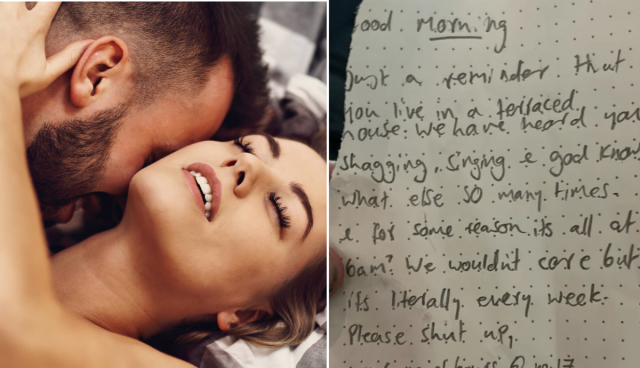 ood Morning
Just a reminder that
you live in a terraced
house. We have heard you
shagging, singing & good know
what else so many times.
& for some reason its all at
6am? We wouldnt care but
its literally every week.
Please shut up,